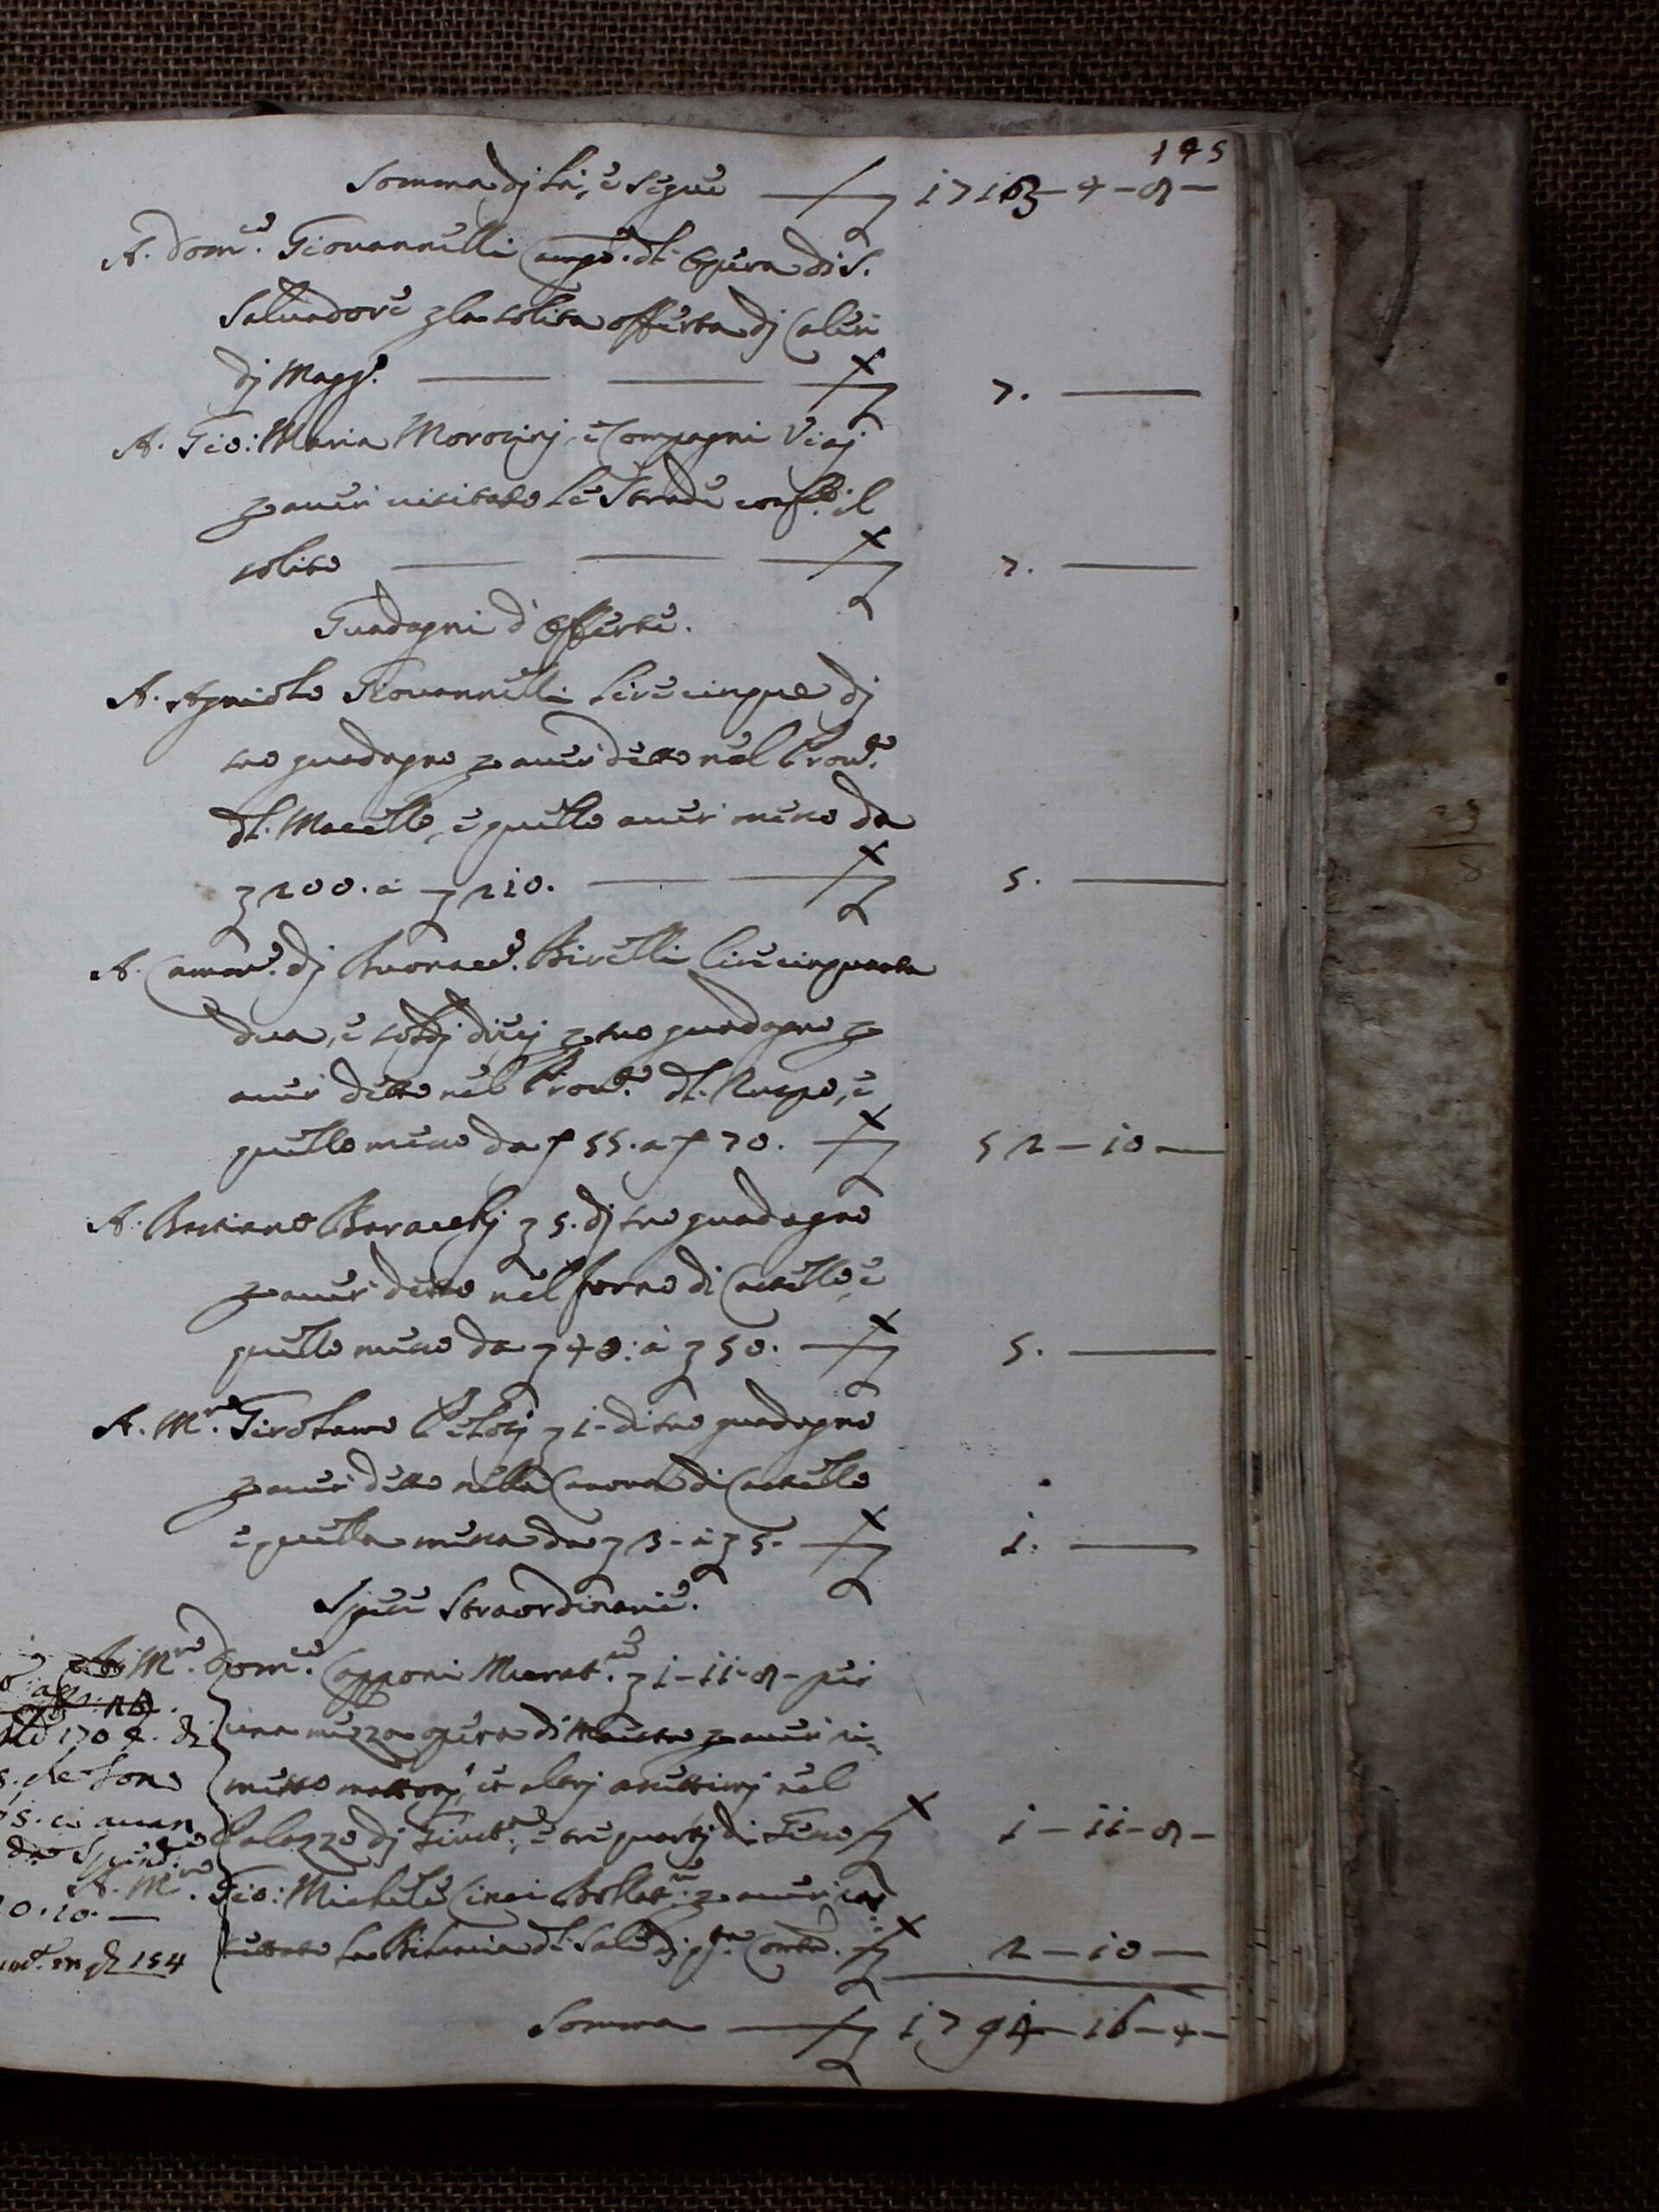 145
Somma di là, e segue — £ 1713 — 4 — 8 —
A. Dom.co Giovannelli Camp.o dl. Opera di S.
Salvadore p la solita offerta dj Calen
dj Magg.o — £ 7. —
A. Gio: Maria Morozinj, e Compagni Viaj
p aver visitato le Strade conf.e il
solito — £ 7. —
Guadagni d'Offerte.
A. Agniolo Giovannelli lire cinque dj
suo guadagno p aver detto nel Prov.to
dl. Macello, e quello aver messo da
£ 200. à £ 210. — £ 5. —
A. Camm.o dj Buonacc.o Birelli lire cinquanta
dua, e soldj diecj p suo guadagno p
aver detto nel Prov.to dl. Ruspo, e
quello messo da f 55. a f 70. — £ 52 — 10 —
A. Bastiano Baracchj £ 5. dj suo guadagno
p aver detto nel forno di Castello, e
quello messo da £ 40: à £ 50. — £ 5. —
A. M.ro Girolamo £ 1 - di suo guadagno
p aver detto nella Canova di Castello
e quella messa da £ 3 - à £ 5 - — £ 1. —
Spese Straordinarie.
M.ro Dom.co Capponi Murat.re £ 1 - 11 - 8 - per
una mezza opera di Maestro p aver ri-
messo mattonj, et altrj assettimj nel
Palazzo dj Giust.a, e tre quartj di Gesso £ 1 — 11 — 8 —
A. M.ro Gio: Michele Cinci p aver
settato la Bilancia dl. Sale dj q.ta £ 2 — 10 —
Somma — £ 1794 — 16 — 4 —
1704.
che sono
5. ci avan
10. 10. —
154